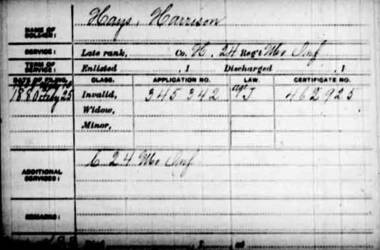 NAME OF SOLDIER: Hays, Harrison
SERVICE: Late rank, Co. H, 24 Reg't Mo Inf
TERM OF SERVICE: Enlisted , 1 Discharged , 1
DATE OF FILING. CLASS. APPLICATION NO. LAW. CERTIFICATE NO.
1880 25 Invalid, 345 342 J 462925
Widow,
Minor,
ADDITIONAL SERVICES: C 24 Mo Inf
REMARKS: